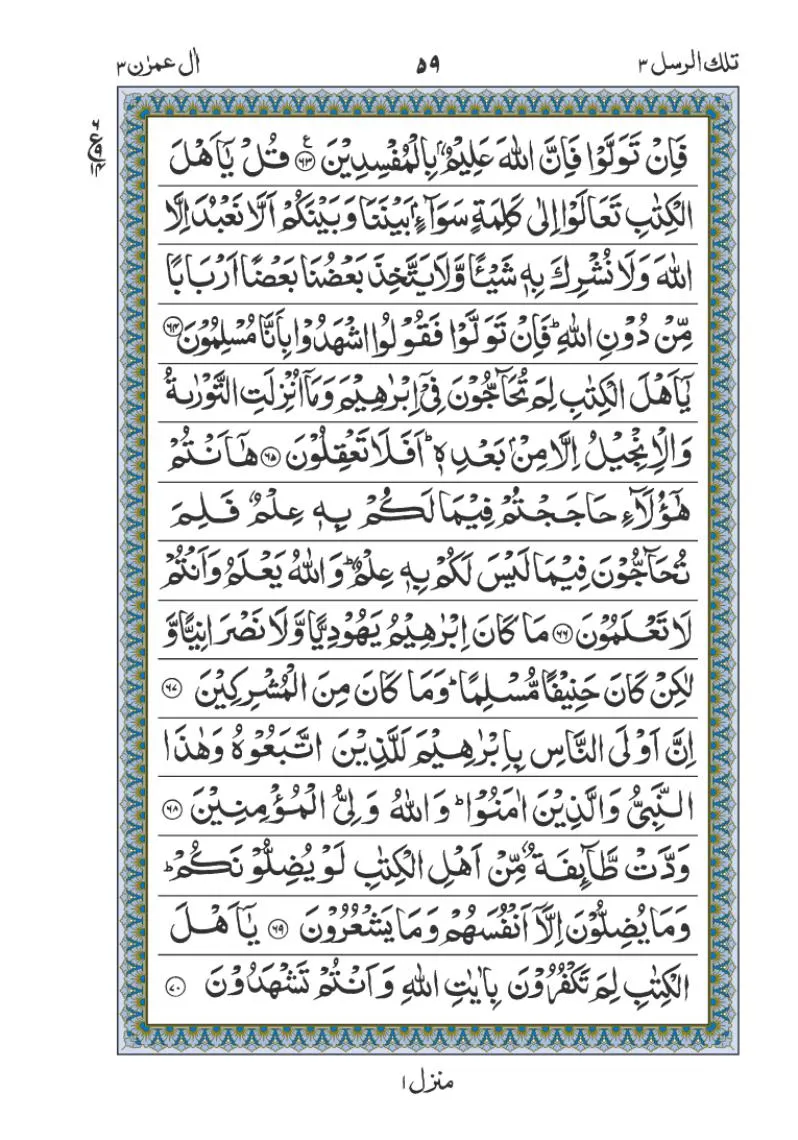 تلك الرسل ٣
٥٩
اٰل عمرٰن ٣
فَاِنْ تَوَلَّوْا فَاِنَّ اللّٰهَ عَلِيْمٌۢ بِالْمُفْسِدِيْنَ ۝٦٣ ع قُلْ يٰۤاَهْلَ
الْكِتٰبِ تَعَالَوْا اِلٰى كَلِمَةٍ سَوَآءٍۭ بَيْنَنَا وَبَيْنَكُمْ اَلَّا نَعْبُدَ اِلَّا
اللّٰهَ وَلَا نُشْرِكَ بِهٖ شَيْـًٔا وَّلَا يَتَّخِذَ بَعْضُنَا بَعْضًا اَرْبَابًا
مِّنْ دُوْنِ اللّٰهِ ؕ فَاِنْ تَوَلَّوْا فَقُوْلُوا اشْهَدُوْا بِاَنَّا مُسْلِمُوْنَ ۝٦٤
يٰۤاَهْلَ الْكِتٰبِ لِمَ تُحَآجُّوْنَ فِيْۤ اِبْرٰهِيْمَ وَمَاۤ اُنْزِلَتِ التَّوْرٰىةُ
وَالْاِنْجِيْلُ اِلَّا مِنْۢ بَعْدِهٖ ؕ اَفَلَا تَعْقِلُوْنَ ۝٦٥ هٰۤاَنْتُمْ
هٰۤؤُلَآءِ حَاجَجْتُمْ فِيْمَا لَكُمْ بِهٖ عِلْمٌ فَلِمَ
تُحَآجُّوْنَ فِيْمَا لَيْسَ لَكُمْ بِهٖ عِلْمٌ ؕ وَاللّٰهُ يَعْلَمُ وَاَنْتُمْ
لَا تَعْلَمُوْنَ ۝٦٦ مَا كَانَ اِبْرٰهِيْمُ يَهُوْدِيًّا وَّلَا نَصْرَانِيًّا وَّ
لٰكِنْ كَانَ حَنِيْفًا مُّسْلِمًا ؕ وَمَا كَانَ مِنَ الْمُشْرِكِيْنَ ۝٦٧
اِنَّ اَوْلَى النَّاسِ بِاِبْرٰهِيْمَ لَلَّذِيْنَ اتَّبَعُوْهُ وَهٰذَا
النَّبِيُّ وَالَّذِيْنَ اٰمَنُوْا ؕ وَاللّٰهُ وَلِيُّ الْمُؤْمِنِيْنَ ۝٦٨
وَدَّتْ طَّآئِفَةٌ مِّنْ اَهْلِ الْكِتٰبِ لَوْ يُضِلُّوْنَكُمْ ؕ
وَمَا يُضِلُّوْنَ اِلَّاۤ اَنْفُسَهُمْ وَمَا يَشْعُرُوْنَ ۝٦٩ يٰۤاَهْلَ
الْكِتٰبِ لِمَ تَكْفُرُوْنَ بِاٰيٰتِ اللّٰهِ وَاَنْتُمْ تَشْهَدُوْنَ ۝٧٠
منزل ١